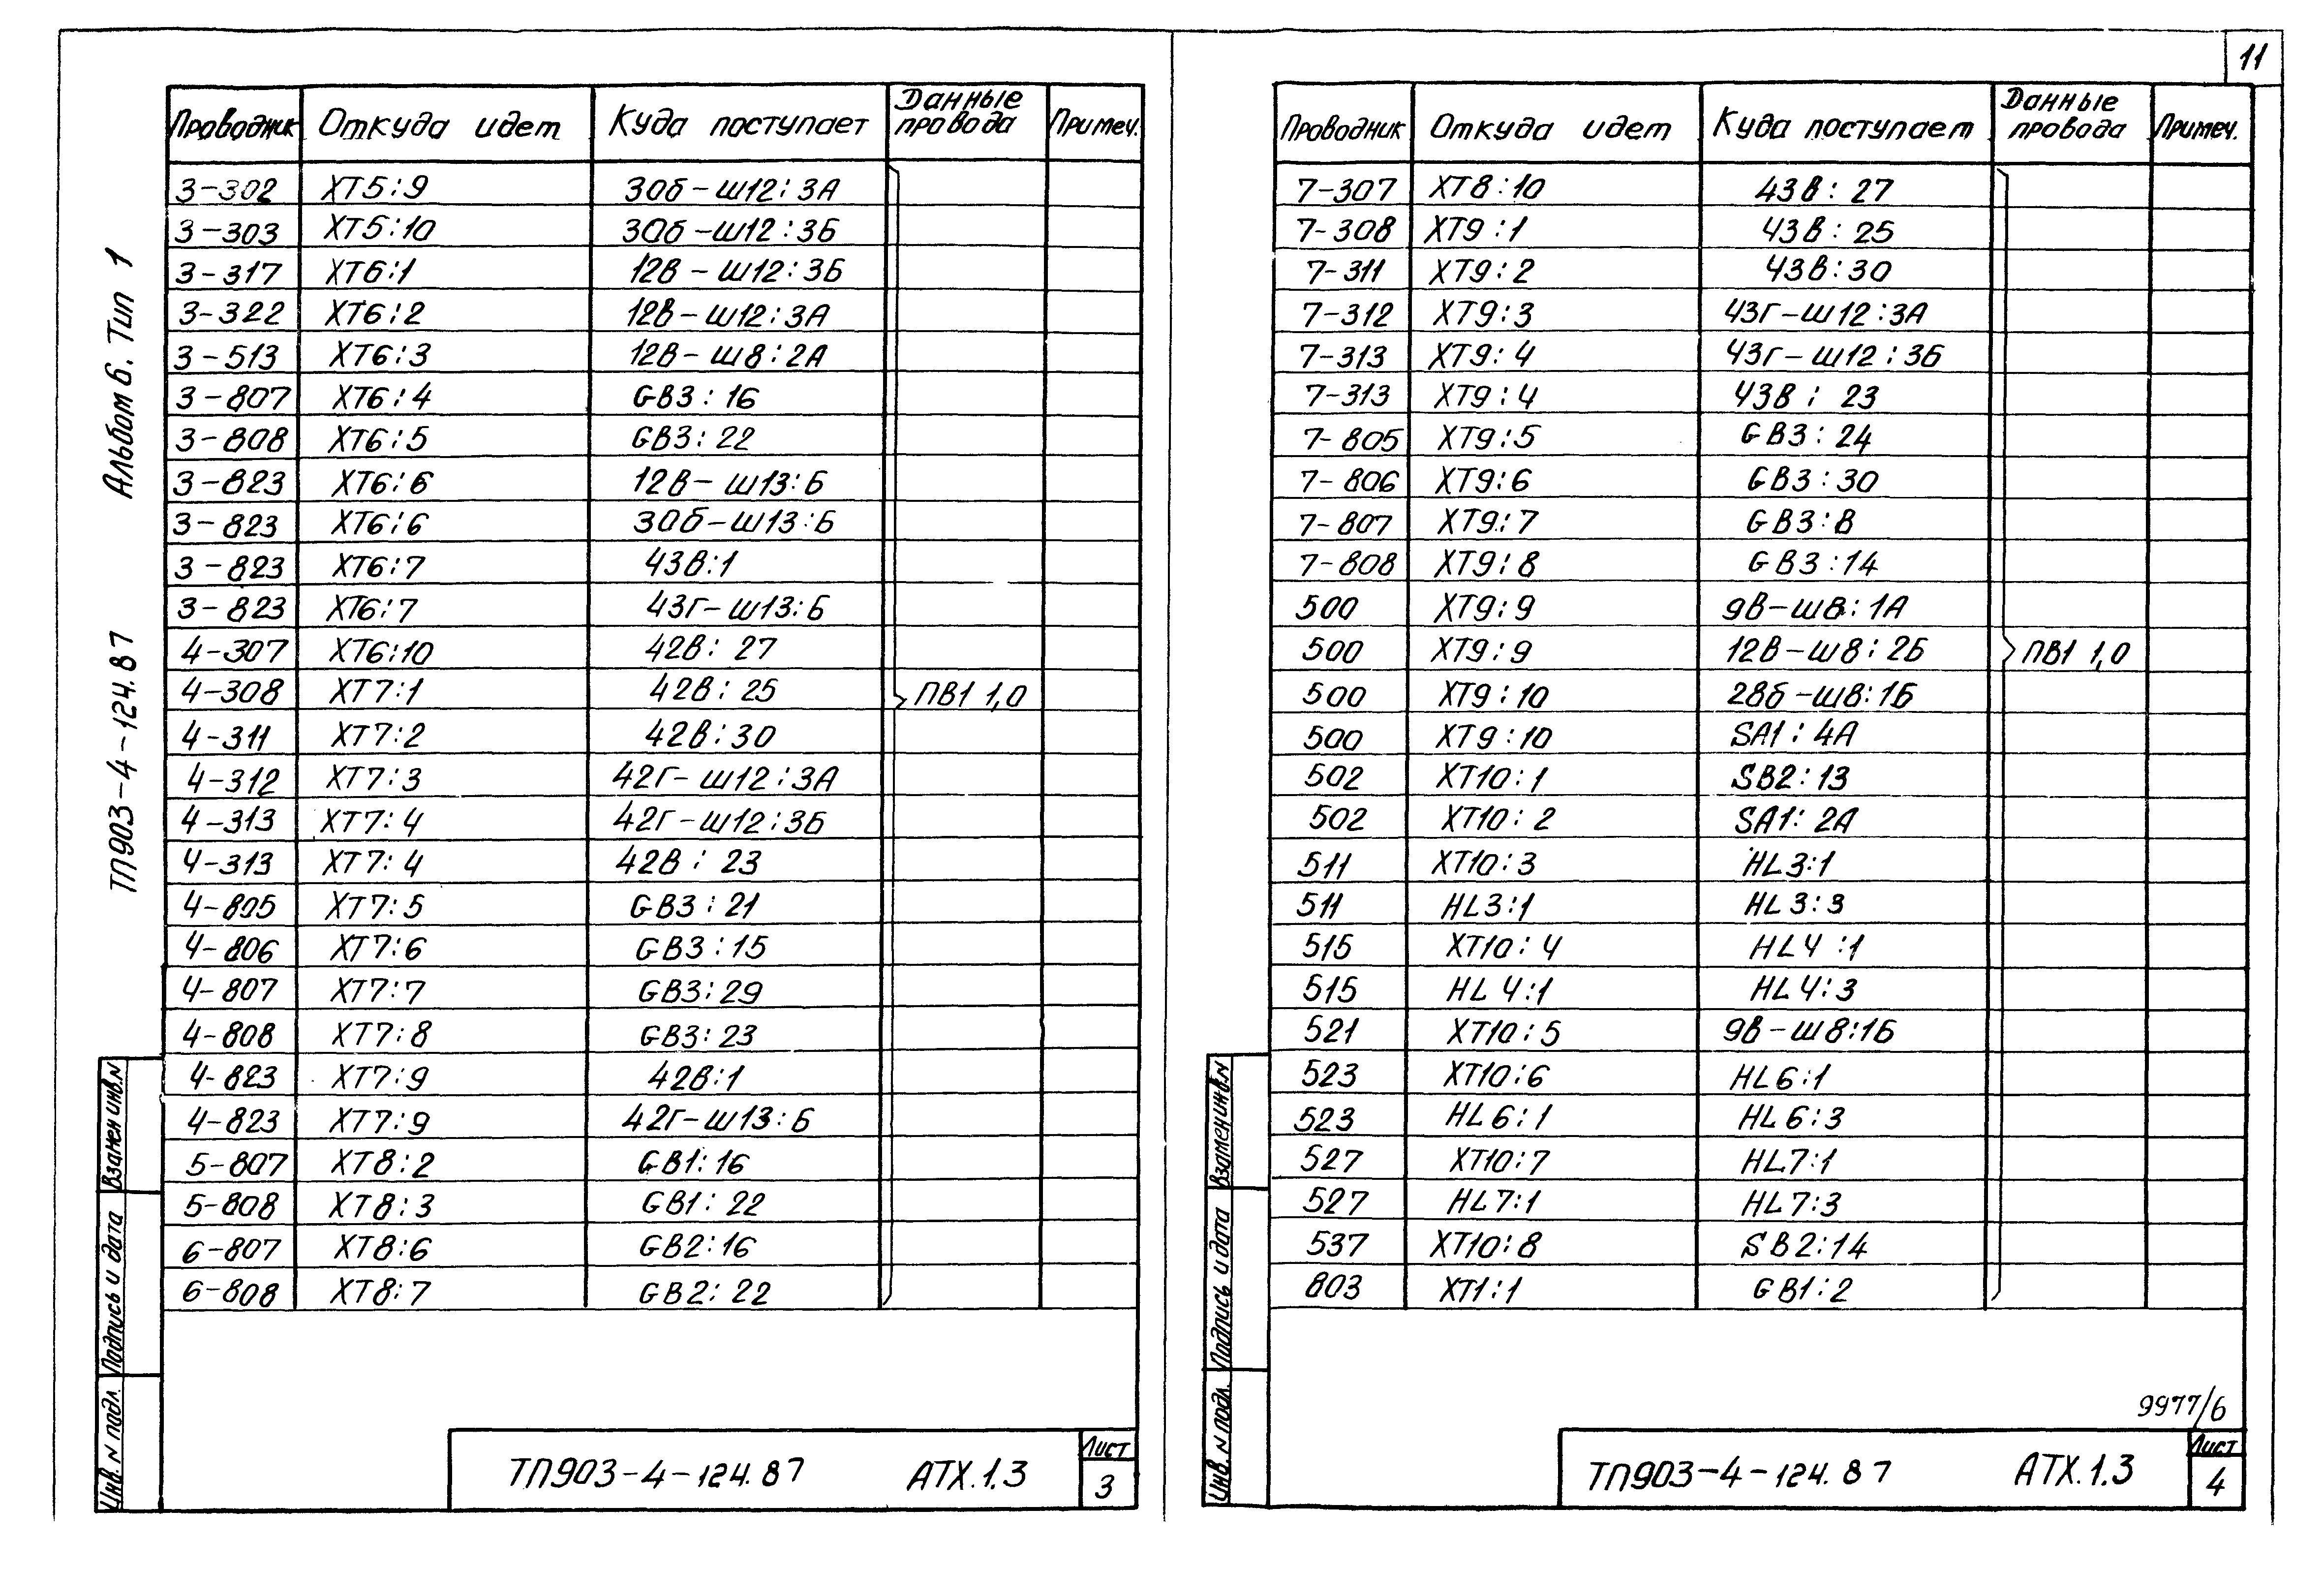 11
Альбом 6. Тип 1
ТП903-4-124.87
Проводник Откуда идет Куда поступает Данные провода Примеч.
3-302 ХТ5:9 30б-Ш12:3А
3-303 ХТ5:10 30б-Ш12:3Б
3-317 ХТ6:1 12В-Ш12:3Б
3-322 ХТ6:2 12В-Ш12:3А
3-513 ХТ6:3 12В-Ш8:2А
3-807 ХТ6:4 GB3:16
3-808 ХТ6:5 GB3:22
3-823 ХТ6:6 12В-Ш13:Б
3-823 ХТ6:6 30б-Ш13:Б
3-823 ХТ6:7 43В:1
3-823 ХТ6:7 43Г-Ш13:Б
4-307 ХТ6:10 42В:27
4-308 ХТ7:1 42В:25 ПВ1 1,0
4-311 ХТ7:2 42В:30
4-312 ХТ7:3 42Г-Ш12:3А
4-313 ХТ7:4 42Г-Ш12:3Б
4-313 ХТ7:4 42В:23
4-805 ХТ7:5 GB3:21
4-806 ХТ7:6 GB3:15
4-807 ХТ7:7 GB3:29
4-808 ХТ7:8 GB3:23
4-823 ХТ7:9 42В:1
4-823 ХТ7:9 42Г-Ш13:Б
5-807 ХТ8:2 GB1:16
5-808 ХТ8:3 GB1:22
6-807 ХТ8:6 GB2:16
6-808 ХТ8:7 GB2:22
Взамен инв.N
Подпись и дата
Инв. N подл.
ТП903-4-124.87 АТХ.1.3 Лист 3
Проводник Откуда идет Куда поступает Данные провода Примеч.
7-307 ХТ8:10 43В:27
7-308 ХТ9:1 43В:25
7-311 ХТ9:2 43В:30
7-312 ХТ9:3 43Г-Ш12:3А
7-313 ХТ9:4 43Г-Ш12:3Б
7-313 ХТ9:4 43В:23
7-805 ХТ9:5 GB3:24
7-806 ХТ9:6 GB3:30
7-807 ХТ9:7 GB3:8
7-808 ХТ9:8 GB3:14
500 ХТ9:9 9В-Ш8:1А
500 ХТ9:9 12В-Ш8:2Б ПВ1 1,0
500 ХТ9:10 28б-Ш8:1Б
500 ХТ9:10 SA1:4А
502 ХТ10:1 SB2:13
502 ХТ10:2 SA1:2А
511 ХТ10:3 HL3:1
511 HL3:1 HL3:3
515 ХТ10:4 HL4:1
515 HL4:1 HL4:3
521 ХТ10:5 9В-Ш8:1Б
523 ХТ10:6 HL6:1
523 HL6:1 HL6:3
527 ХТ10:7 HL7:1
527 HL7:1 HL7:3
537 ХТ10:8 SB2:14
803 ХТ1:1 GB1:2
Взамен инв.N
Подпись и дата
Инв. N подл.
9977/6
ТП903-4-124.87 АТХ.1.3 Лист 4